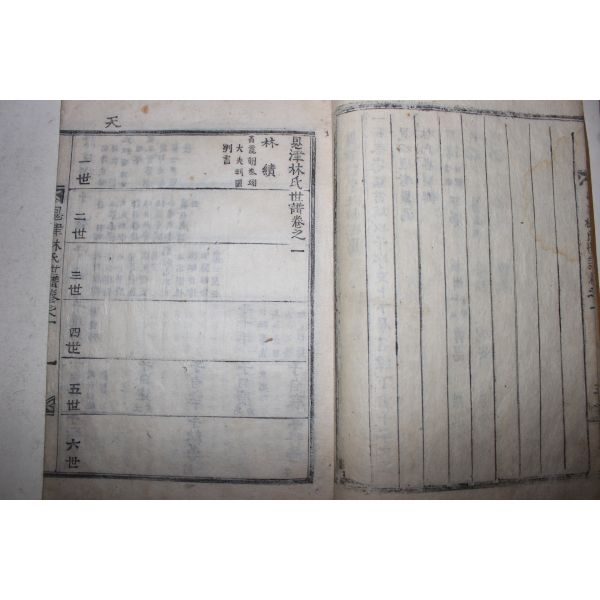 恩津林氏世譜卷之一
林績
大夫判圖
判書
天
一世
二世
三世
四世
五世
六世
恩津林氏世譜卷之一
一